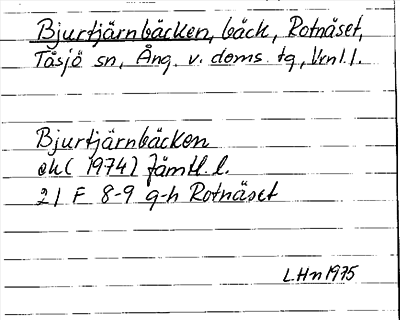 Bjurtjärnbäcken, bäck, Rotnäset,
Tåsjö sn, Ång. v. doms. tg, Vrnl. l.
Bjurtjärnbäcken
ek( 1974) Jämtl. l.
21 F 8-9 g-h Rotnäset
L.Hn 1975